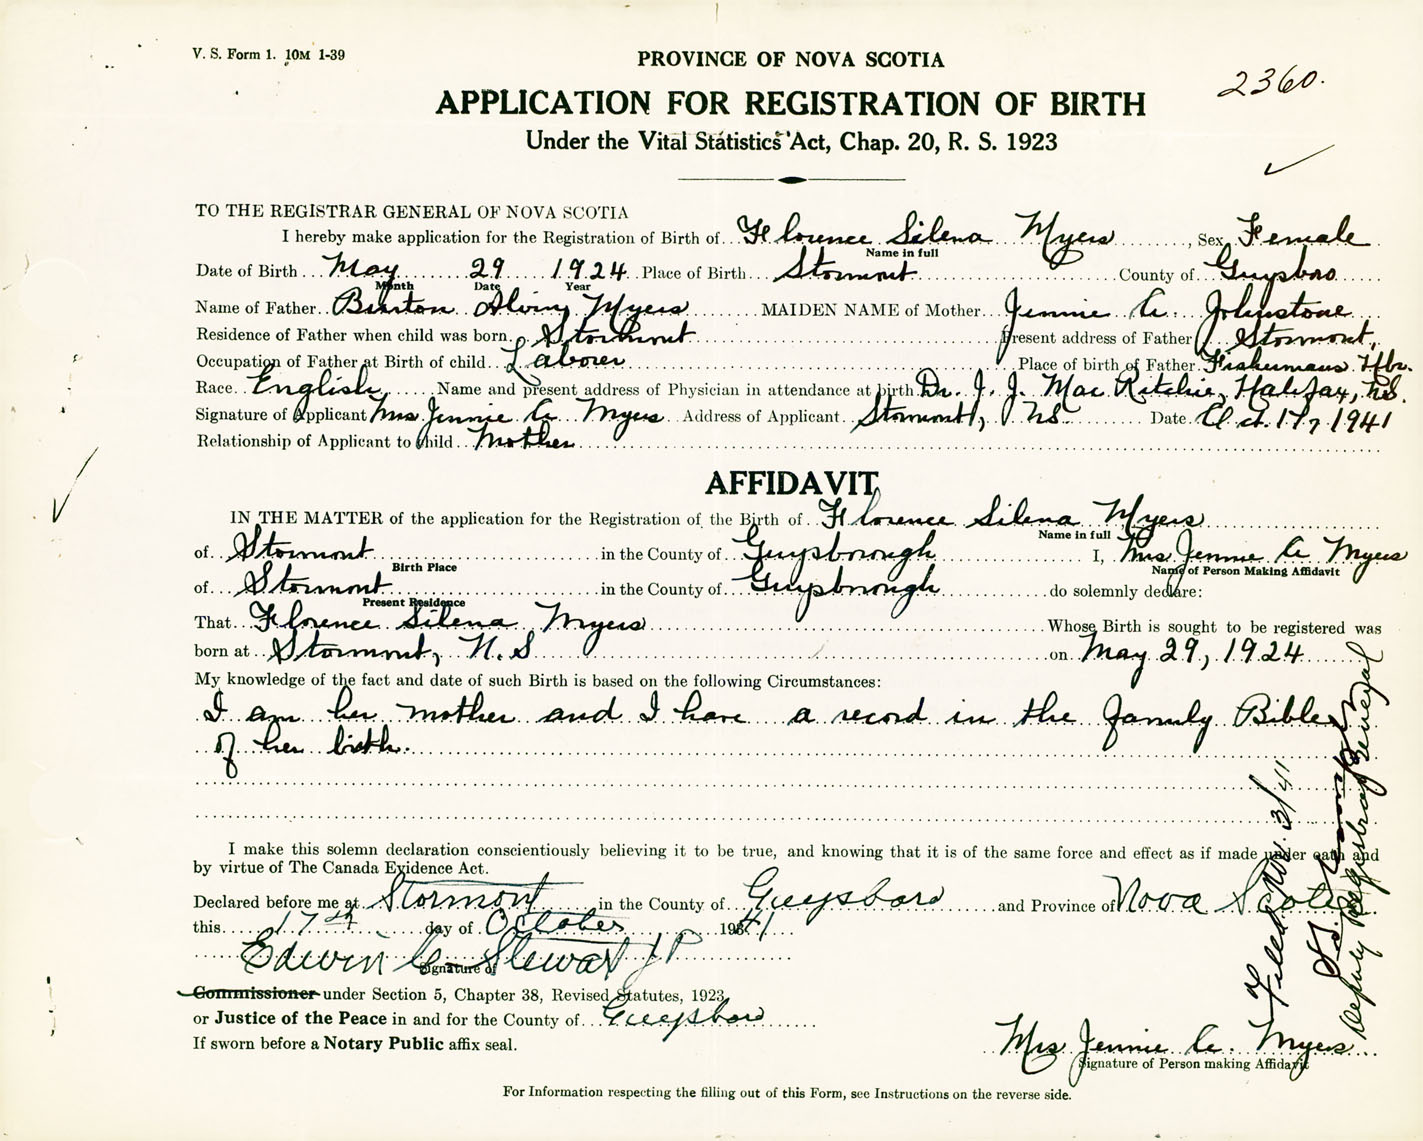 V. S. Form 1. 10M 1-39
PROVINCE OF NOVA SCOTIA
2360.
APPLICATION FOR REGISTRATION OF BIRTH
Under the Vital Statistics Act, Chap. 20, R. S. 1923
TO THE REGISTRAR GENERAL OF NOVA SCOTIA
I hereby make application for the Registration of Birth of Florence Silena Myers, Sex Female
Name in full
Date of Birth May 29 1924 Place of Birth Stormont County of Guysboro
Month Date Year
Name of Father Burton Alvin Myers MAIDEN NAME of Mother Jennie A. Johnstone
Residence of Father when child was born Stormont Present address of Father Stormont,
Occupation of Father at Birth of child Laborer Place of birth of Father Fishermans Hbr.
Race English Name and present address of Physician in attendance at birth Dr. J. J. Mac Ritchie, Halifax, N.S.
Signature of Applicant Mrs Jennie A Myers Address of Applicant Stormont, NS Date Oct. 17, 1941
Relationship of Applicant to child Mother
AFFIDAVIT
IN THE MATTER of the application for the Registration of the Birth of Florence Silena Myers
Name in full
of Stormont in the County of Guysborough I, Mrs Jennie A Myers
Birth Place Name of Person Making Affidavit
of Stormont in the County of Guysborough do solemnly declare:
Present Residence
That Florence Silena Myers Whose Birth is sought to be registered was
born at Stormont, N.S on May 29, 1924
My knowledge of the fact and date of such Birth is based on the following Circumstances:
I am her mother and I have a record in the family Bible
of her birth.
I make this solemn declaration conscientiously believing it to be true, and knowing that it is of the same force and effect as if made under oath and
by virtue of The Canada Evidence Act.
Declared before me at Stormont in the County of Guysboro and Province of Nova Scotia
this 17th day of October 1941
Edwin C Stewart JP
Signature of
Commissioner under Section 5, Chapter 38, Revised Statutes, 1923
or Justice of the Peace in and for the County of Guysboro
If sworn before a Notary Public affix seal.
Mrs Jennie A. Myers
Signature of Person making Affidavit
Filed Nov. 3/41
Deputy Registrar General
For Information respecting the filling out of this Form, see Instructions on the reverse side.